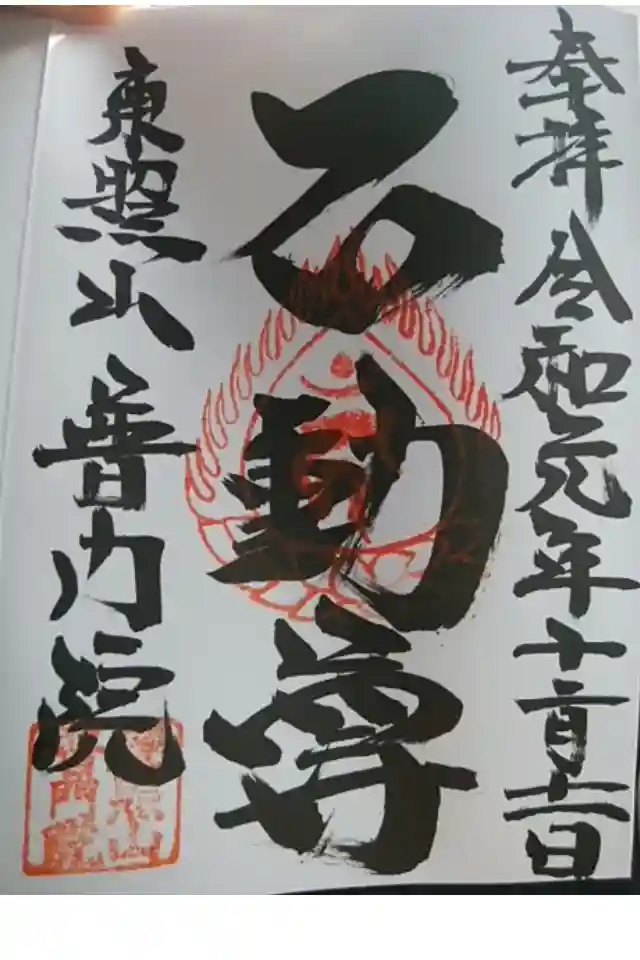 奉拝 令和元年十二月六日
不動尊
東照山 普門院